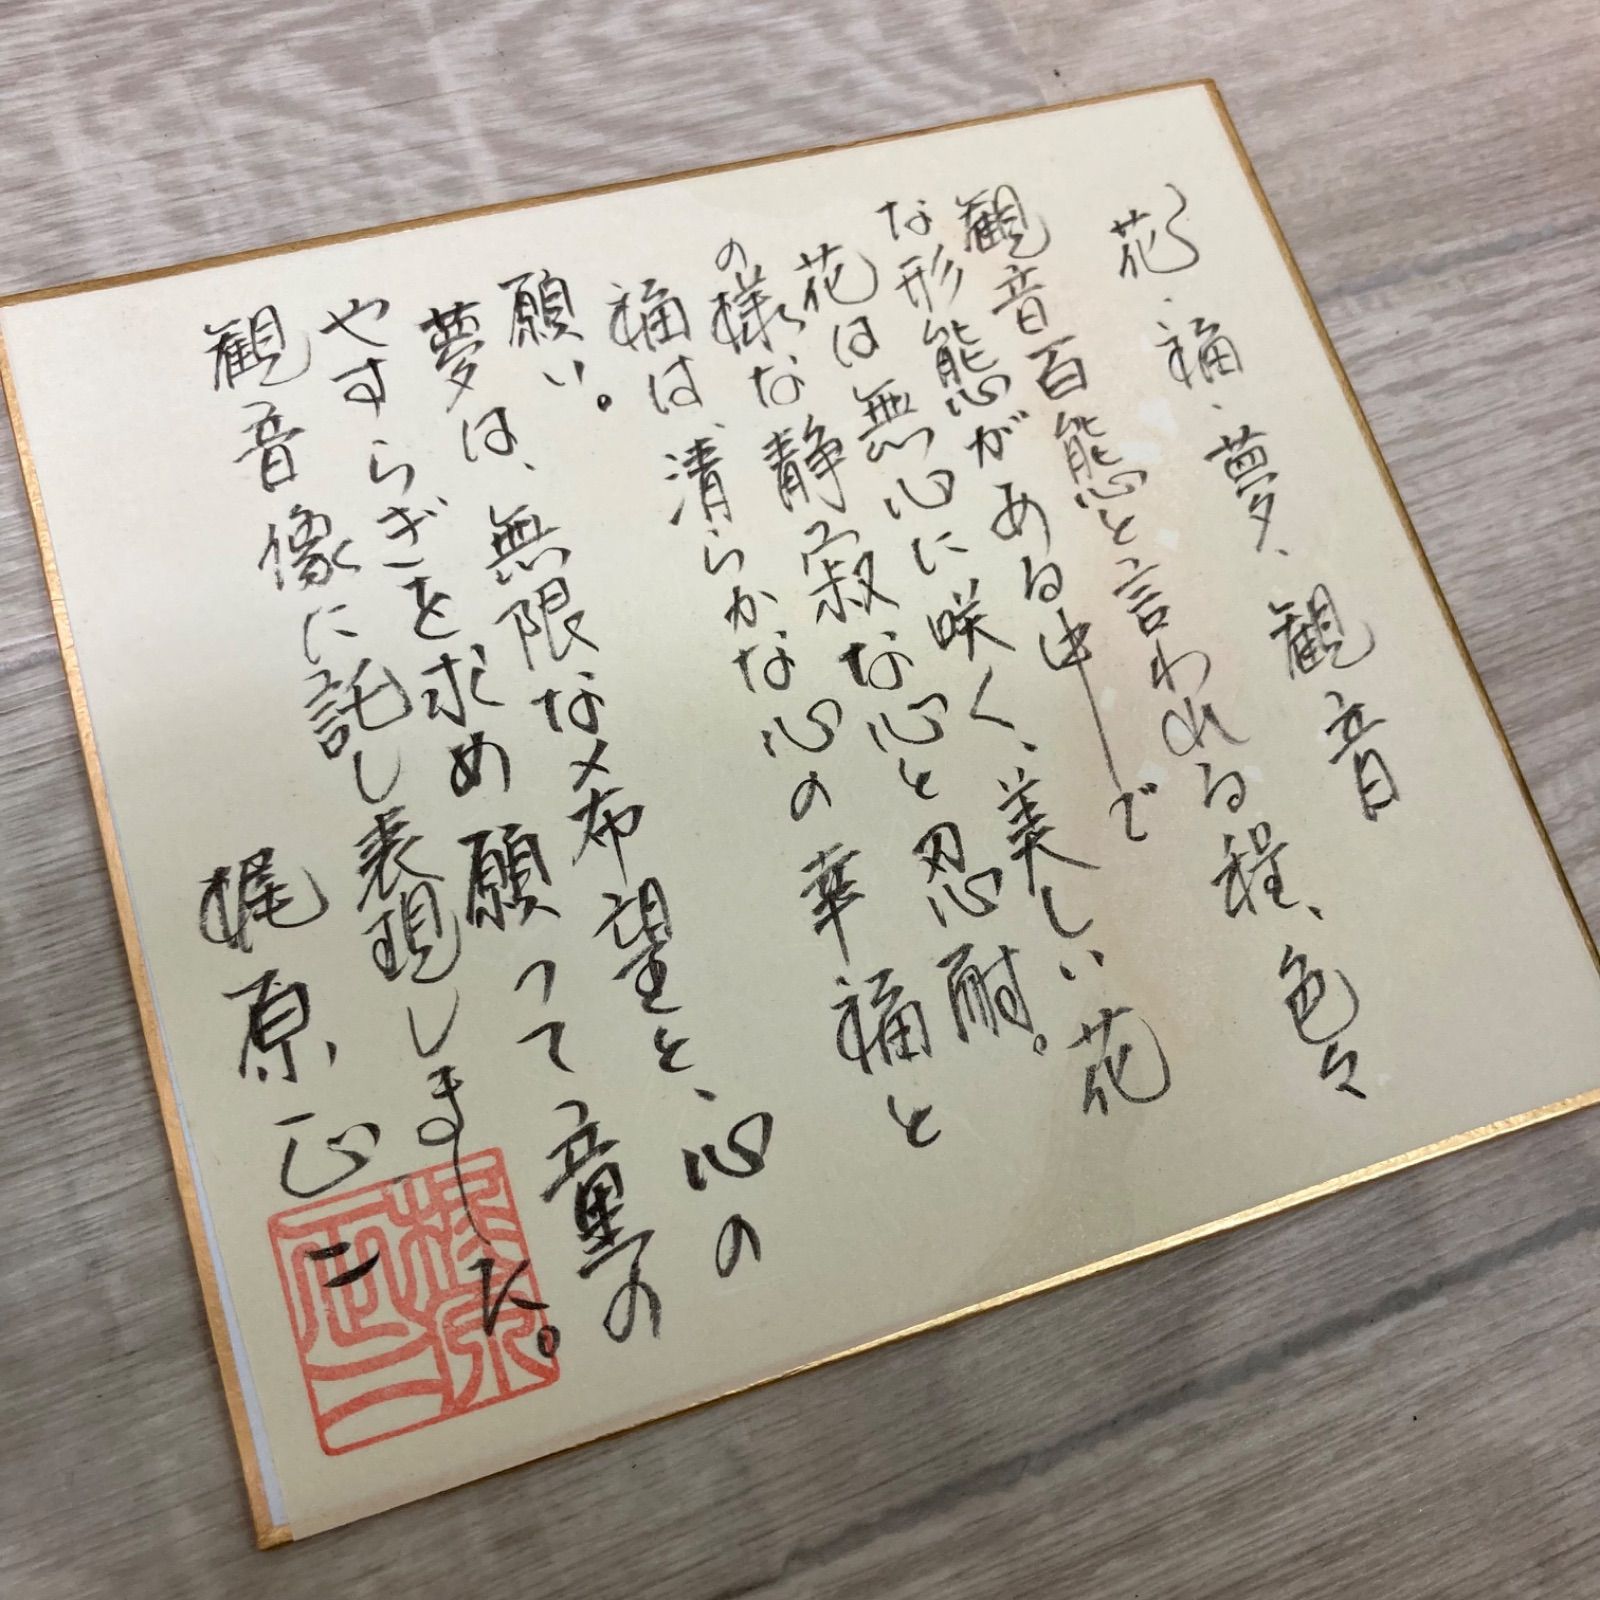 花、福、夢、観音
観音百態と言われる程、色々
な形態がある中で
花は無心に咲く、美しい花
の様な静寂な心と忍耐。
福は、清らかな心の幸福と
願い。
夢は、無限な希望と、心の
やすらぎを求め願って童子の
観音像に託し表現しました。
梶原正二
梶原正二